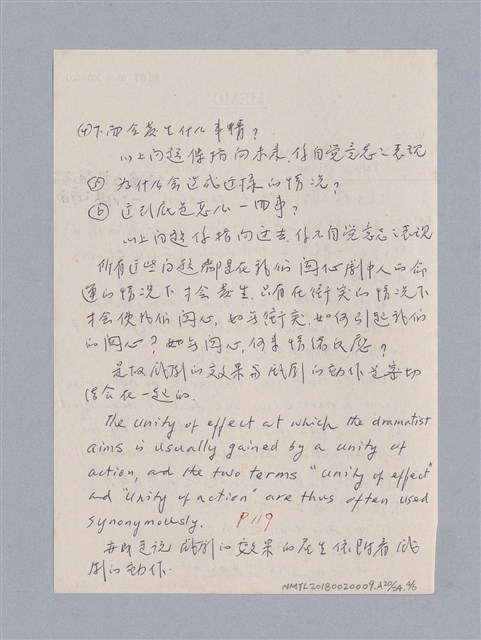 (4)下面会發生什么事情？
以上问题係指向未来，係自觉意志之表现
(5) 为什么会造成这样的情况？
(6) 这到底是怎么一回事？
以上问题係指向过去，係不自觉意志之表现
所有这些问题都是在我们関心劇中人的命
運的情况下才会發生，只有在衝突的情况下
才会使我们関心，如无衝突，如何引起我们
的関心？如无関心，何来情緒反應？
是故戲劇的效果与戲劇的动作是密切
结合在一起的.
The unity of effect at which the dramatist
aims is usually gained by a unity of
action, and the two terms "unity of effect"
and "unity of action" are thus often used
synonymously. P119
亦即是说 戲劇的效果的产生依附着戲
劇的动作.
NMTL20180020009.A20/SA.4/6